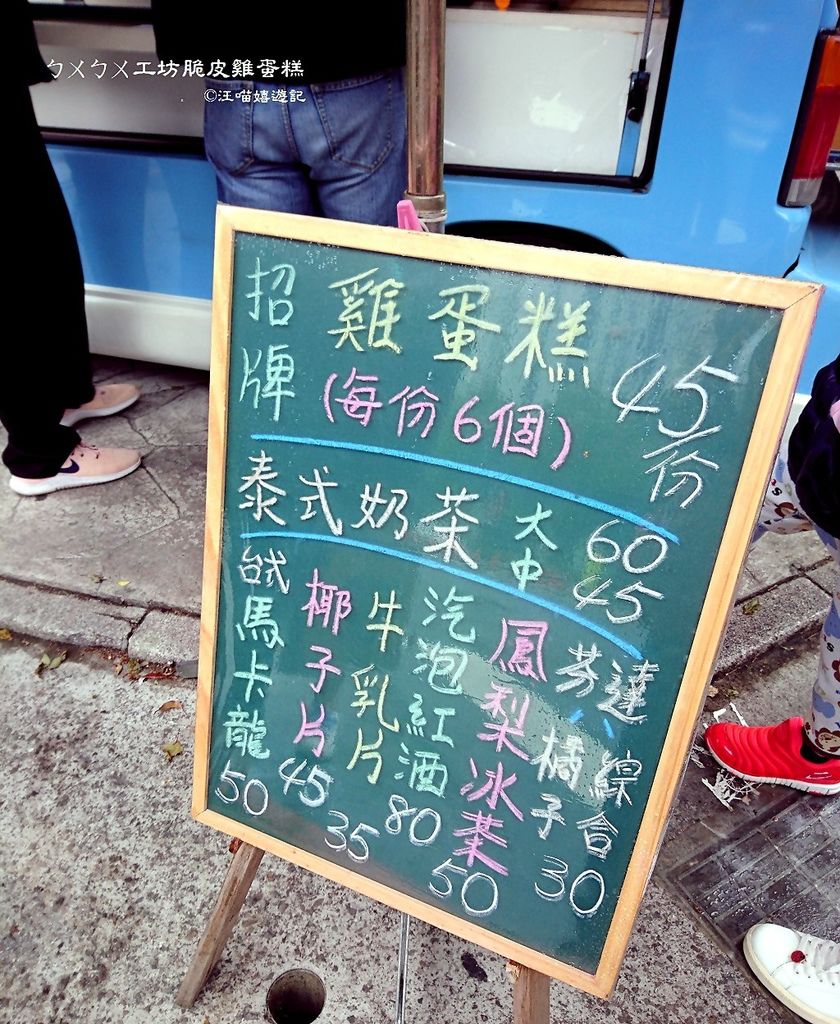 ㄅㄨㄅㄨ工坊脆皮雞蛋糕
©汪喵嬉遊記
招牌
雞蛋糕
(每份6個)
45/份
泰式奶茶
大 60
中 45
馬卡龍
50
椰子片
45
牛乳片
35
汽泡紅酒
80
鳳梨冰茶
50
芬達
橘子
綜合
30